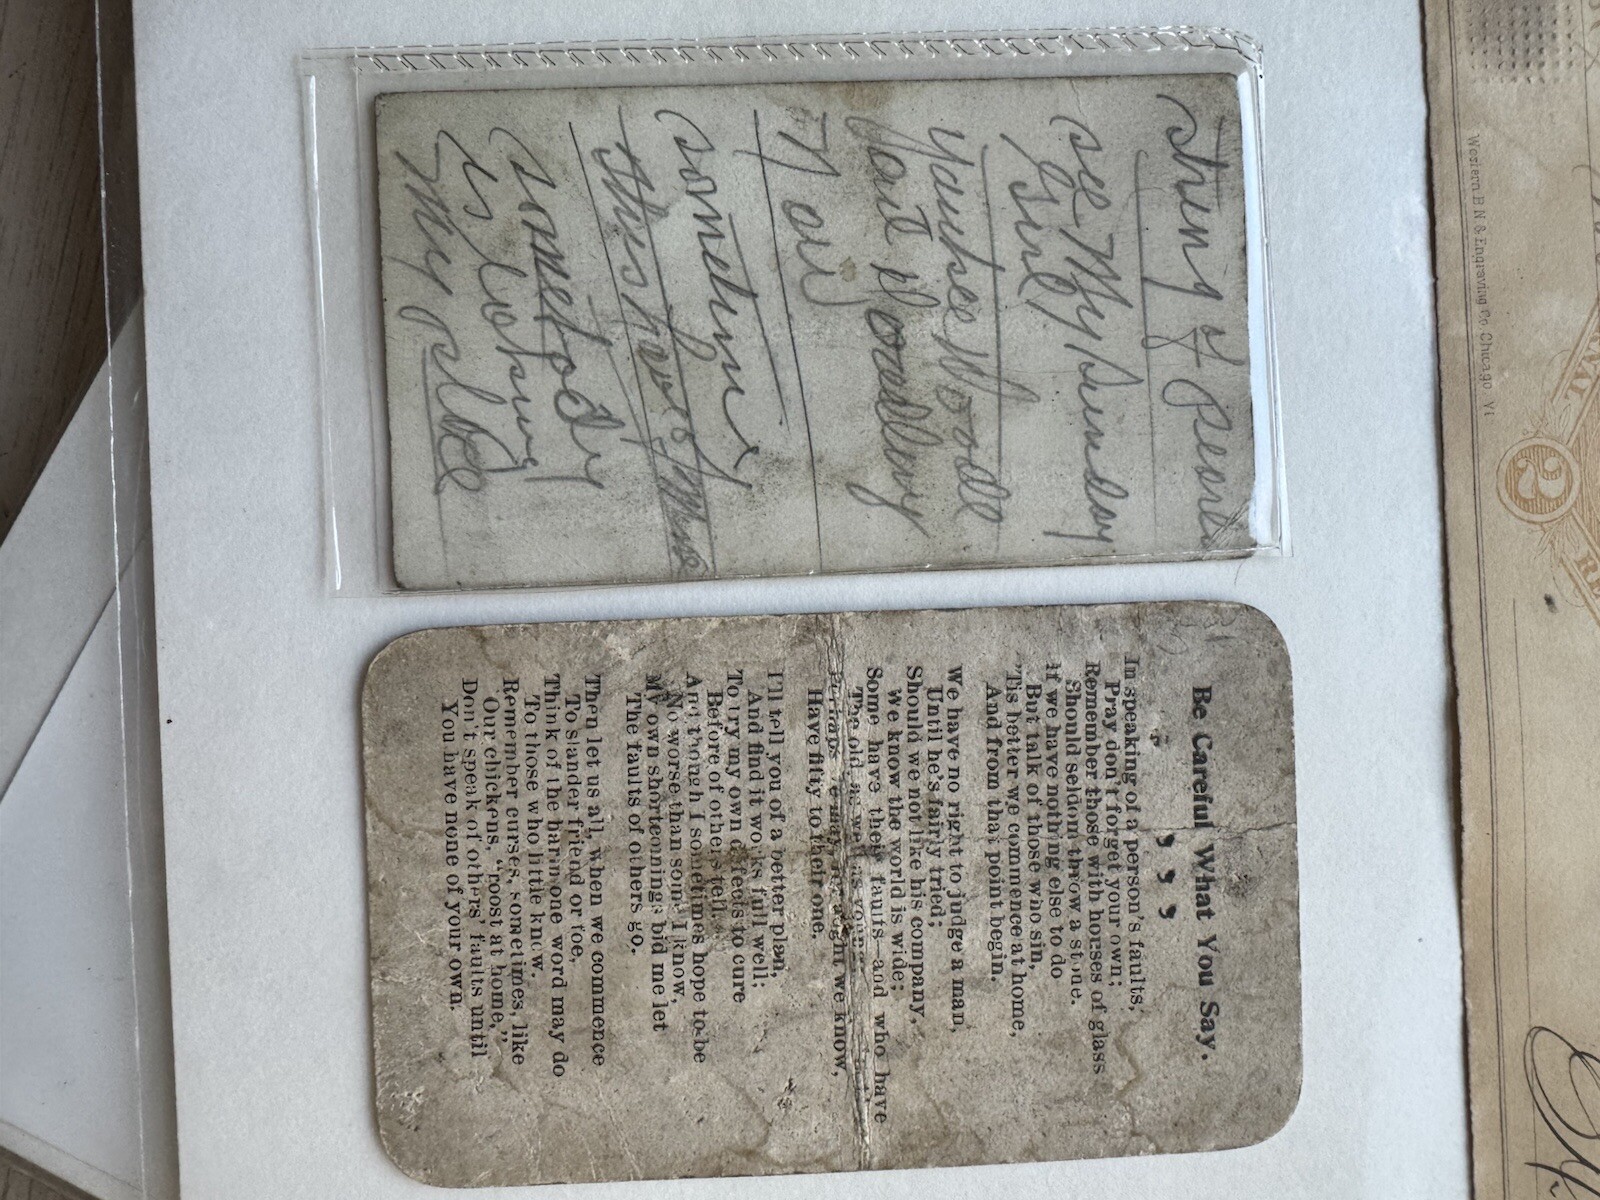 string of pearls
see My Sunday
Girl
Yaukee Doodle
Paul Doodlwy
Now
Sometime
this
somebody
is
My
Be Careful What You Say.
In speaking of a person's faults,
Pray don't forget your own;
Remember those with houses of glass
Should seldom throw a stone.
If we have nothing else to do
But talk of those who sin,
'Tis better we commence at home,
And from that point begin.
We have no right to judge a man,
Until he's fairly tried;
Should we not like his company,
We know the world is wide;
Some have their faults—and who have
The old as well as young
Perhaps we may, for aught we know,
Have fifty to their one.
I'll tell you of a better plan,
And find it works full well;
To try my own defects to cure
Before of others tell.
And though I sometimes hope to be
No worse than some I know,
My own shortcomings bid me let
The faults of others go.
Then let us all, when we commence
To slander friend or foe,
Think of the harm one word may do
To those who little know.
Remember curses, sometimes, like
Our chickens, "roost at home,"
Don't speak of others' faults until
You have none of your own.
Western B N & Engraving Co. Chicago
2